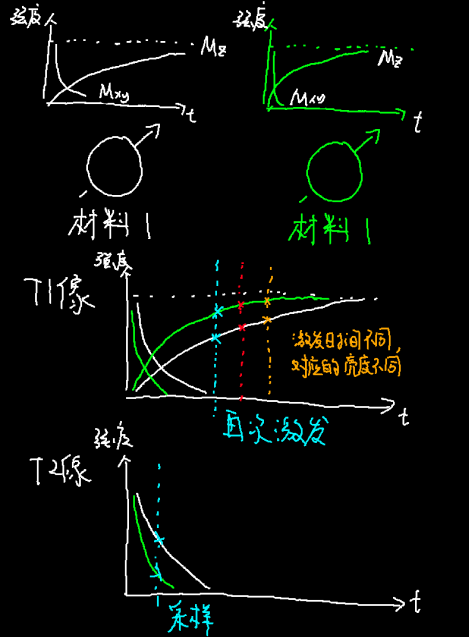 强度
Mz
Mxy
t
材料1
强度
Mz
Mxy
t
材料1
T1像
强度
激发时间不同,
对应的亮度不同
t
再次激发
T2像
强度
t
采样